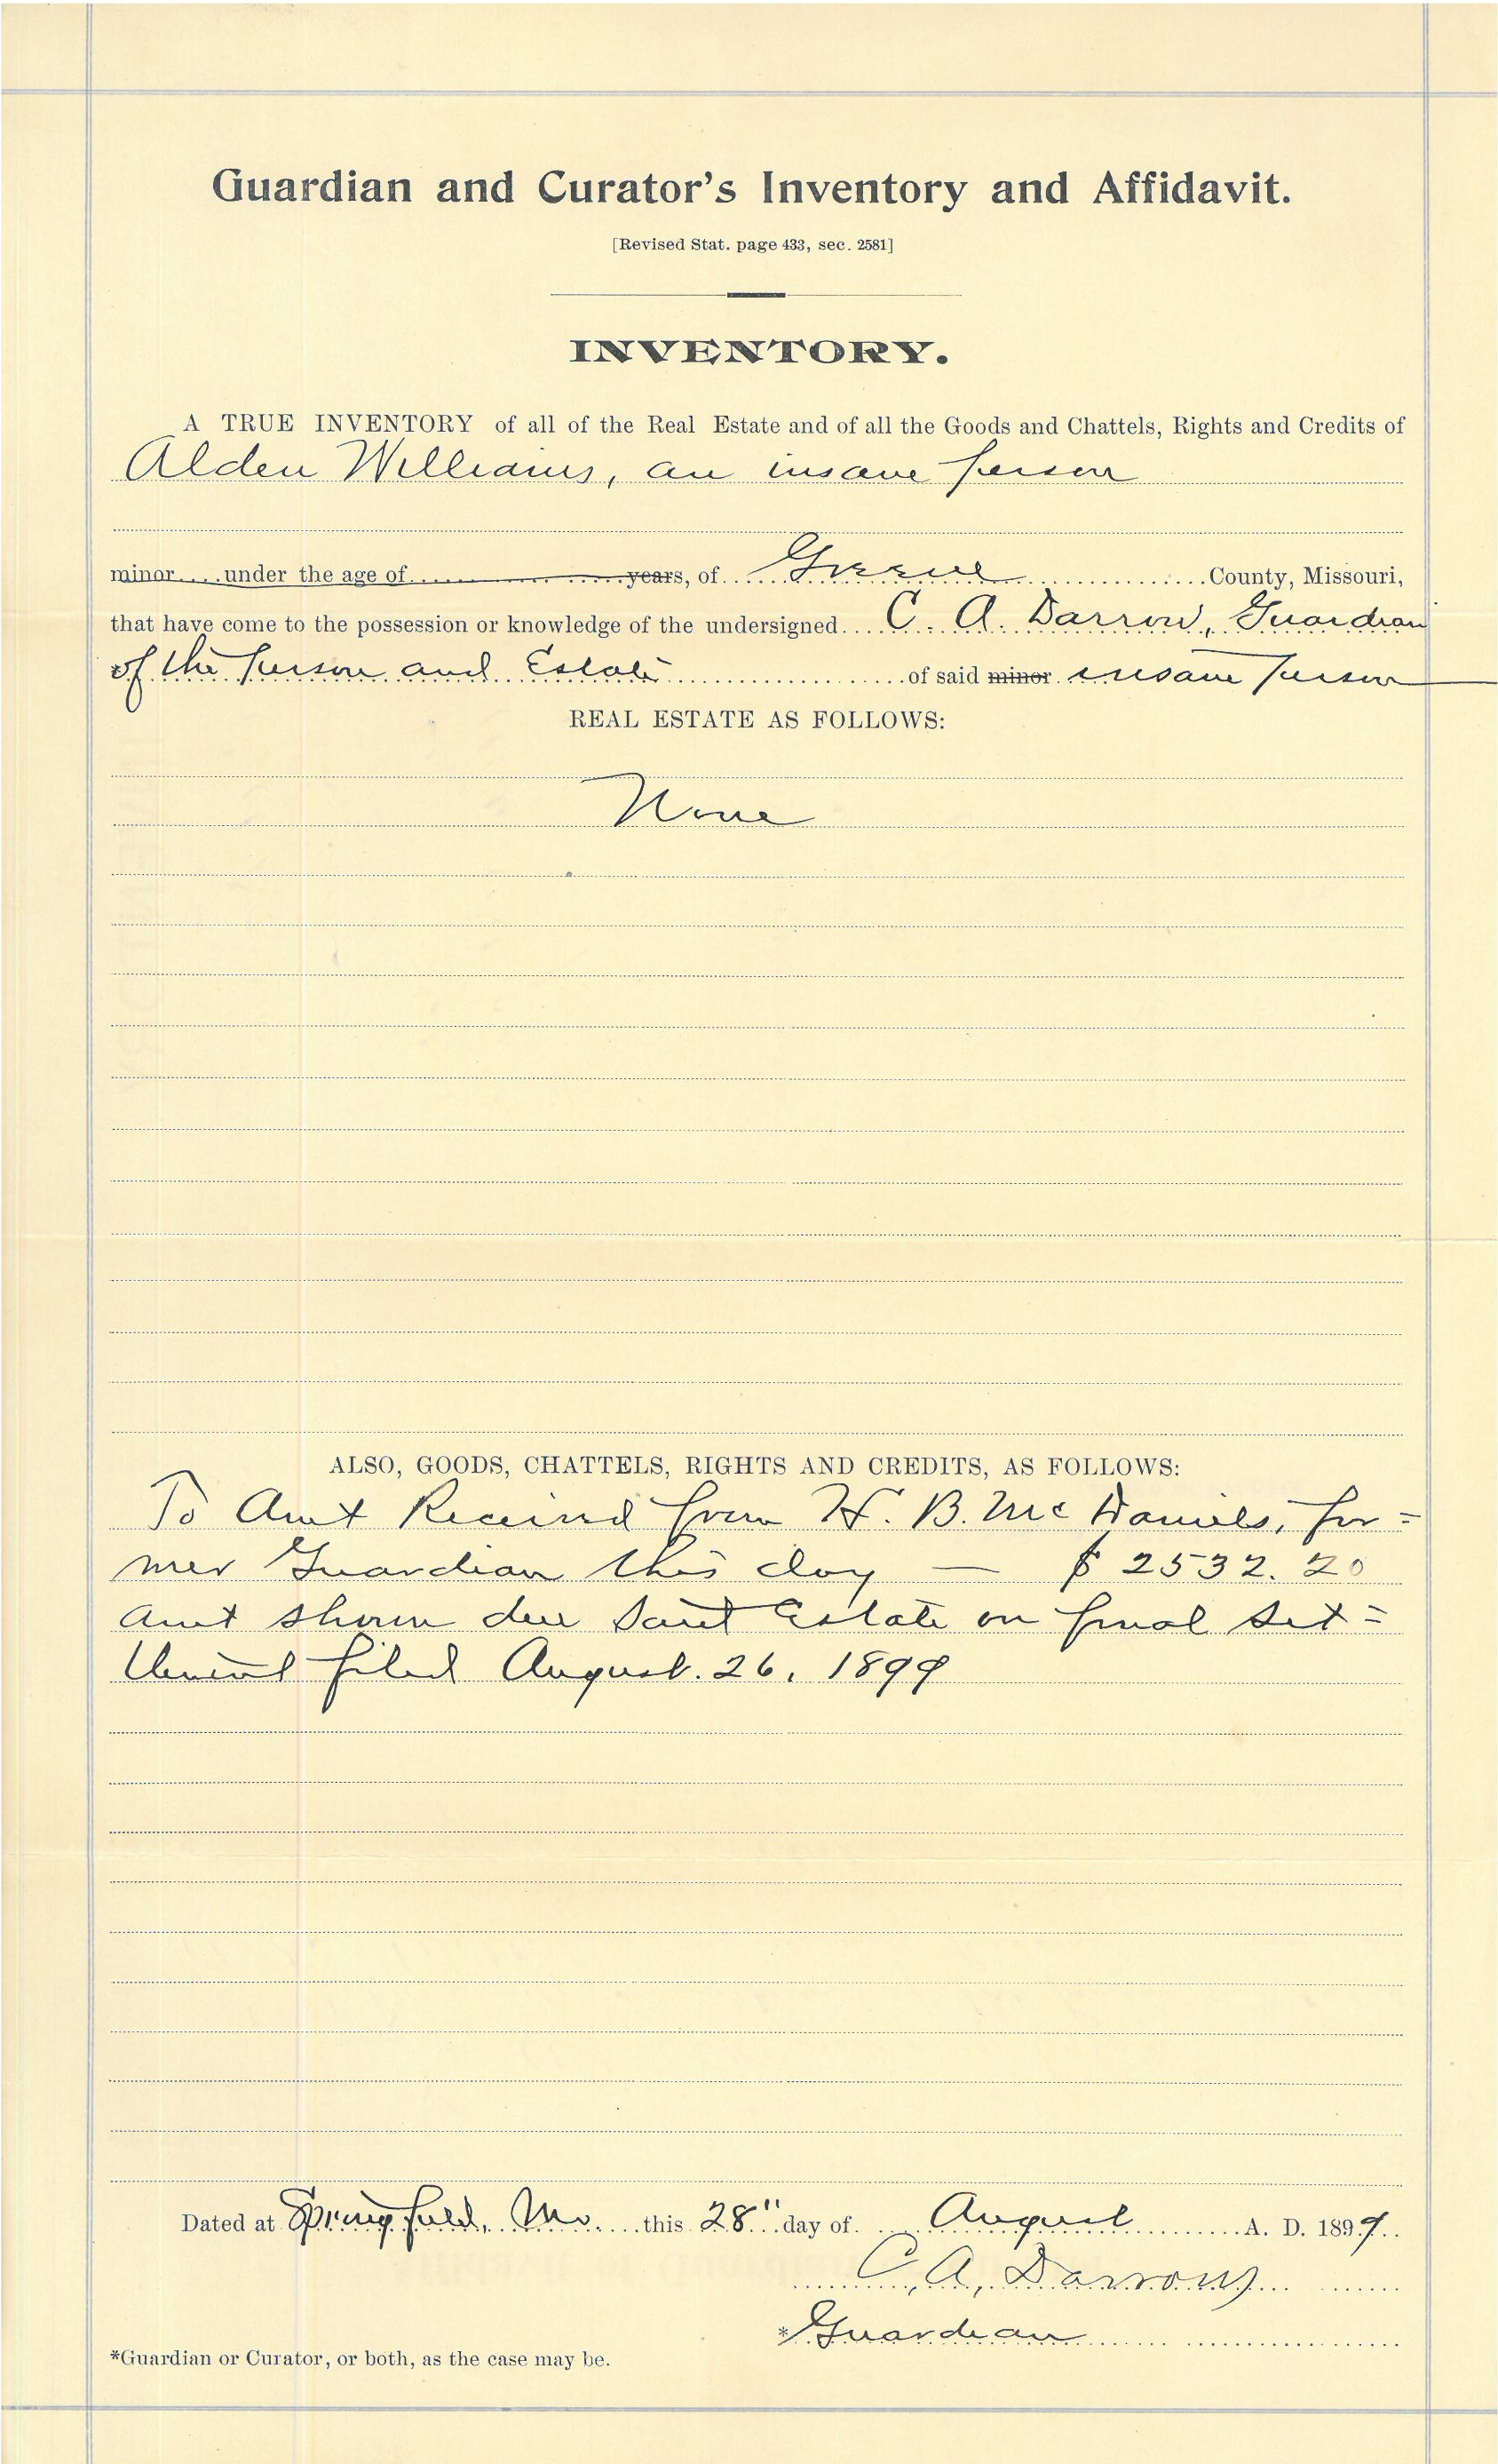 Guardian and Curator's Inventory and Affidavit.
[Revised Stat. page 433, sec. 2581]
INVENTORY.
A TRUE INVENTORY of all of the Real Estate and of all the Goods and Chattels, Rights and Credits of
Alden Williams, an insane person
minor....under the age of..................years, of.....Greene..............County, Missouri,
that have come to the possession or knowledge of the undersigned...C. A. Darrow, Guardian
of the Person and Estate....................of said minor insane person
REAL ESTATE AS FOLLOWS:
None
ALSO, GOODS, CHATTELS, RIGHTS AND CREDITS, AS FOLLOWS:
To Amt Received from H. B. McDaniels, for=
mer Guardian this day — $2532.20
Amt shown due Said Estate on final Set=
tlement filed August. 26, 1899
Dated at Springfield, Mo. this 28" day of August A. D. 1899.
C. A. Darrow
*Guardian
*Guardian or Curator, or both, as the case may be.